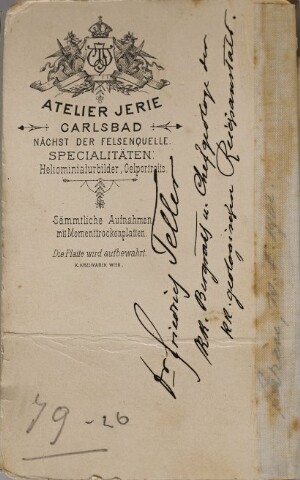 ATELIER JERIE
CARLSBAD
NÄCHST DER FELSENQUELLE.
SPECIALITÄTEN:
Heliominiaturbilder, Oelportraits
Sämmtliche Aufnahmen
mit Momenttrockenplatten.
Die Platte wird aufbewahrt.
K. KRZIWANEK WIEN.
Dr Friedrich Teller
k.k. Bergrath u. Chefgeologe der
k.k. geologischen Reichsanstalt.
79 - 26